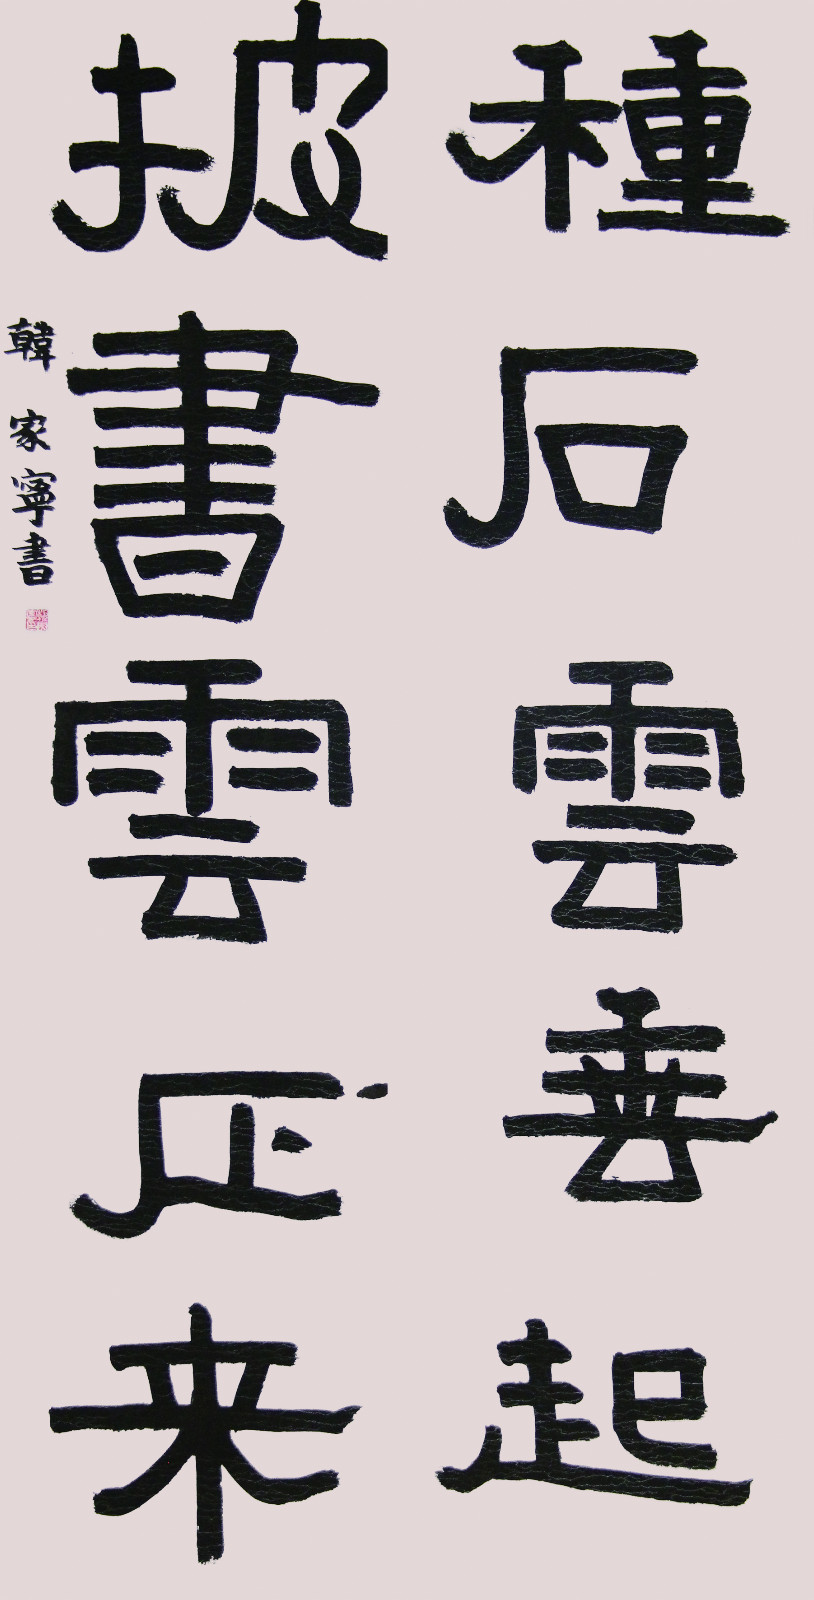 種石雲起
披書雲来
韓家寧書